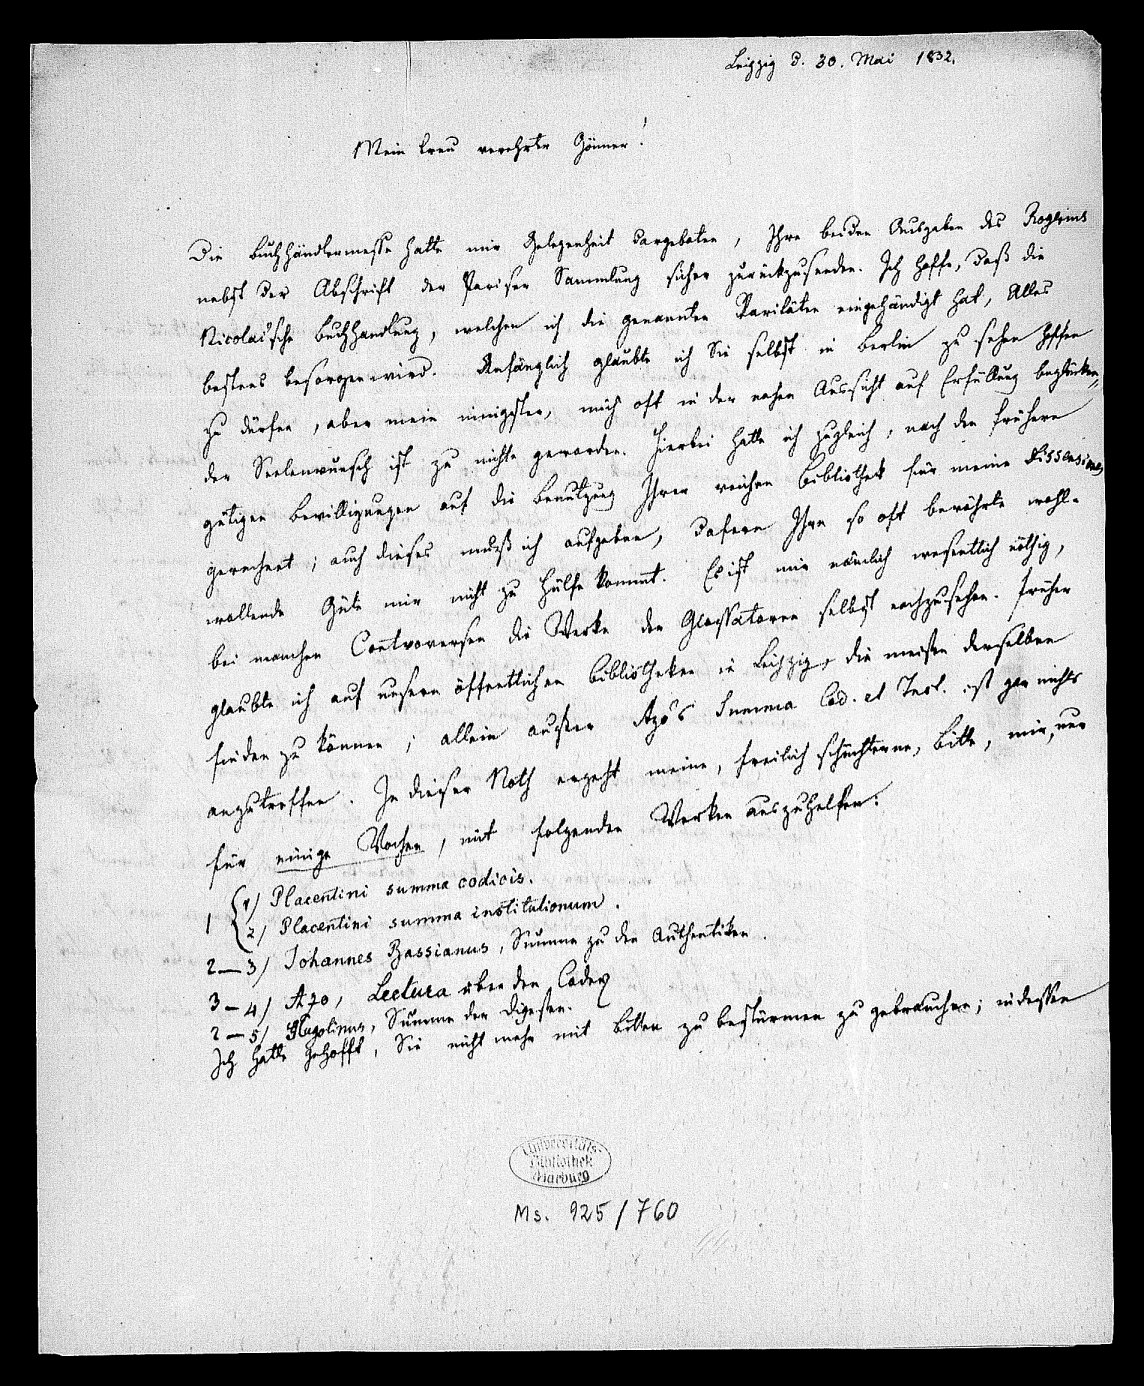 Leipzig d. 30. Mai 1832.
Mein treu verehrter Gönner!
Die Buchhändlermesse hatte mir Gelegenheit dargeboten, Ihre beiden Ausgaben des Rogerius
nebst der Abschrift der Pariser Sammlung sicher zurückzusenden. Ich hoffe, daß die
Nicolai'sche Buchhandlung, welcher ich die genannten Raritäten eingehändigt hat, Alles
bestens besorgen wird. Anfänglich glaubte ich Sie selbst in Berlin zu sehen hoffen
zu dürfen, aber mein innigster, mich oft in der nahen Aussicht auf Erfüllung beglücken-
der Seelenwunsch ist zu nichte geworden. Hierbei hatte ich zugleich, nach den frühern
gütigen Bewilligungen auf die Benutzung Ihrer reichen Bibliothek für meine Dissensiones
gerechnet; auch dieses muß ich aufgeben, dafern Ihre so oft bewährte wohl-
wollende Güte mir nicht zu Hülfe kommt. Es ist mir nämlich wesentlich nöthig,
bei manchen Controversen die Werke der Glossatoren selbst nachzusehen. Früher
glaubte ich auf unsern öffentlichen Bibliotheken in Leipzig, die meisten derselben
finden zu können; allein außer Azo's Summa Cod. et Inst. ist gar nichts
anzutreffen. In dieser Noth ergeht meine, freilich schüchterne, Bitte, mir, nur
für einige Wochen, mit folgenden Werken auszuhelfen:
1 { 1) Placentini summa codicis.
2) Placentini summa institutionum.
2—3) Johannes Bassianus, Summe zu den Authentiken.
3—4) Azo, Lectura über den Codex
2—5) Hugolinus, Summe der Digesten.
Ich hatte gehofft, Sie nicht mehr mit Bitten zu bestürmen zu gebrauchen; indessen
Universitäts-
Bibliothek
Marburg
Ms. 925/760